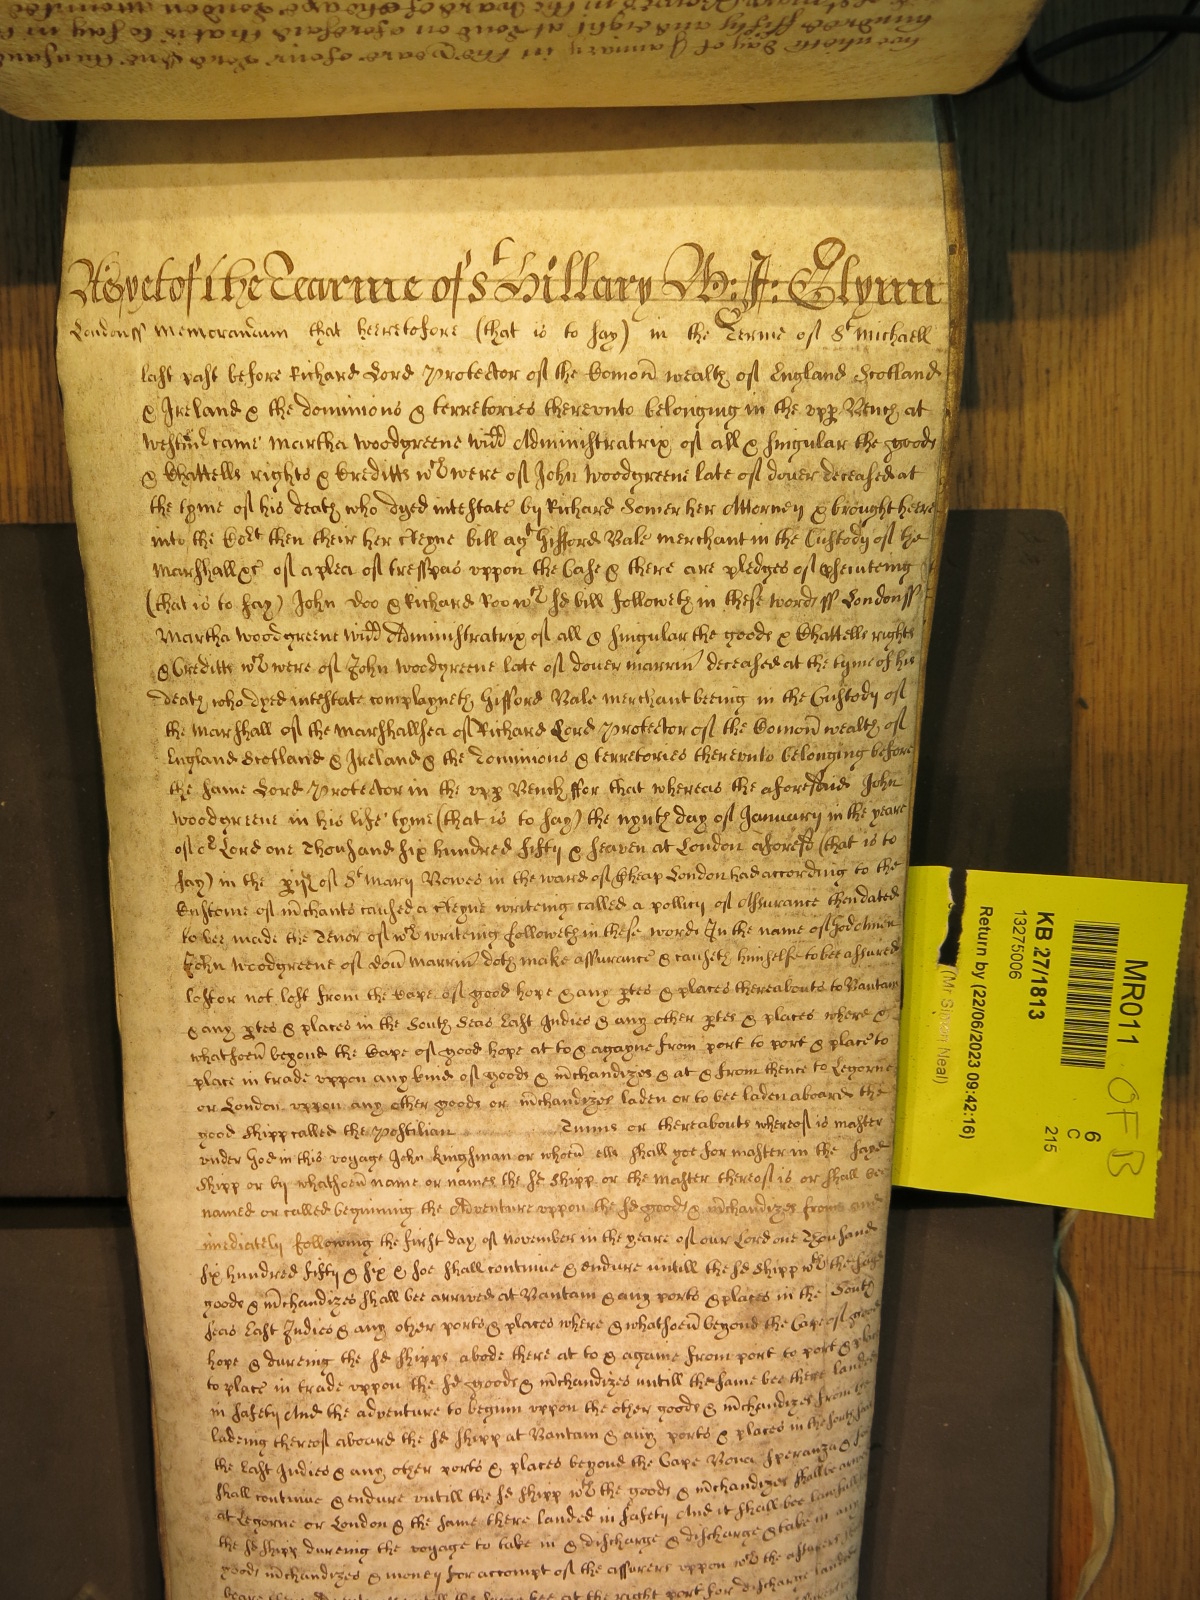 twentieth day of January in the yeare of our Lord One thousand
hundred fifty and eight at London aforesaid that is to say in
As yet of the Tearme of St Hillary W: J: Glynn
Londonss Memorandum that heeretofore (that is to say) in the Terme of St Michaell
last past before Richard Lord Protector of the Comon wealth of England Scotland
& Ireland & the dominions & territories thereunto belonging in the upp Bench at
Westmr came Martha Woodgreene widd Administratrix of all & singular the goods
& Chattells rights & Creditts wch were of John Woodgreene late of dover deceased at
the tyme of his death who dyed intestate by Richard Somer her Attorney & brought heere
into the Cort then their her cteyne bill agt Gifford Bale merchant in the Custody of the
Marshall &c of a plea of tresspas uppon the Case & there are pledges of pseinteing
(that is to say) John Doo & Richard Roo wch sd bill followeth in these words ss Londonss
Martha Woodgreene widd Administratrix of all & singular the goods & Chattells rights
& Creditts wch were of John Woodgreene late of dover marrin deceased at the tyme of his
death who dyed intestate complayneth Gifford Bale merchant beeing in the Custody of
the Marshall of the Marshallsea of Richard Lord Protector of the Comon wealth of
England Scotland & Ireland & the Dominions & territories thereunto belonging before
the same Lord Protector in the upp Bench ffor that whereas the aforesaid John
Woodgreene in his life tyme (that is to say) the nynth day of January in the yeare
of or Lord one Thousand six hundred fifty & seaven at London aforesd (that is to
say) in the pish of St Mary Bowes in the ward of Cheap London had according to the
Custome of mchants caused a cteyne writeing called a pollicy of Assurance then dated
to bee made the Tenor of wch writeing followeth in these words In the name of God Amen
John Woodgreene of dov marrin doth make assurance & causeth himselfe to bee assured
lost or not lost from the Cape of good hope & any ptes & places thereabouts to Bantam
& any ptes & places in the South Seas East Indies & any other ptes & places where &
whatsoev beyond the Cape of good hope at to & agayne from port to port & place to
place in trade uppon any kind of goods & mchandizes & at & from thence to Legorne
or London uppon any other goods or mchandizes laden or to bee laden aboard the
good shipp called the Postilian Tunns or thereabouts whereof is master
under God in this voyage John Kingsman or whoev ells shall goe for master in the sayd
shipp or by whatsoev name or names the sd shipp or the master thereof is or shall bee
named or called beginning the Adventure uppon the sd goods & mchandizes from and
imediately following the first day of November in the yeare of our Lord one Thousand
six hundred fifty & six & soe shall continue & endure untill the sd shipp wth the sayd
goods & mchandizes shall bee arrived at Bantam & any ports & places in the South
seas East Indies & any other ports & places where & whatsoev beyond the Cape of good
hope & dureing the sd shipps abode there at to & againe from port to port & place
to place in trade uppon the sd goods & mchandizes untill the same bee there landed
in safety And the adventure to beginn uppon the other goods & mchandizes from the
ladeing thereof aboard the sd shipp at Bantam & any ports & places in the South seas
the East Indies & any other ports & places beyond the Cape Bona Speranza & soe
shall continue & endure untill the sd shipp wth the goods & mchandizes shall be arrived
at Legorne or London & the same there landed in safety And it shall bee lawfull
the sd shipp dureing the voyage to take in & discharge & discharge & take in any
goods mchandizes & money for accompt of the assurers uppon wch the assurers
the same bee at the right port for discharge landed
MR011
6
C
215
KB 27/1813
13275006
Return by (22/06/2023 09:42:16)
(Mr Simon Neal)
OFB